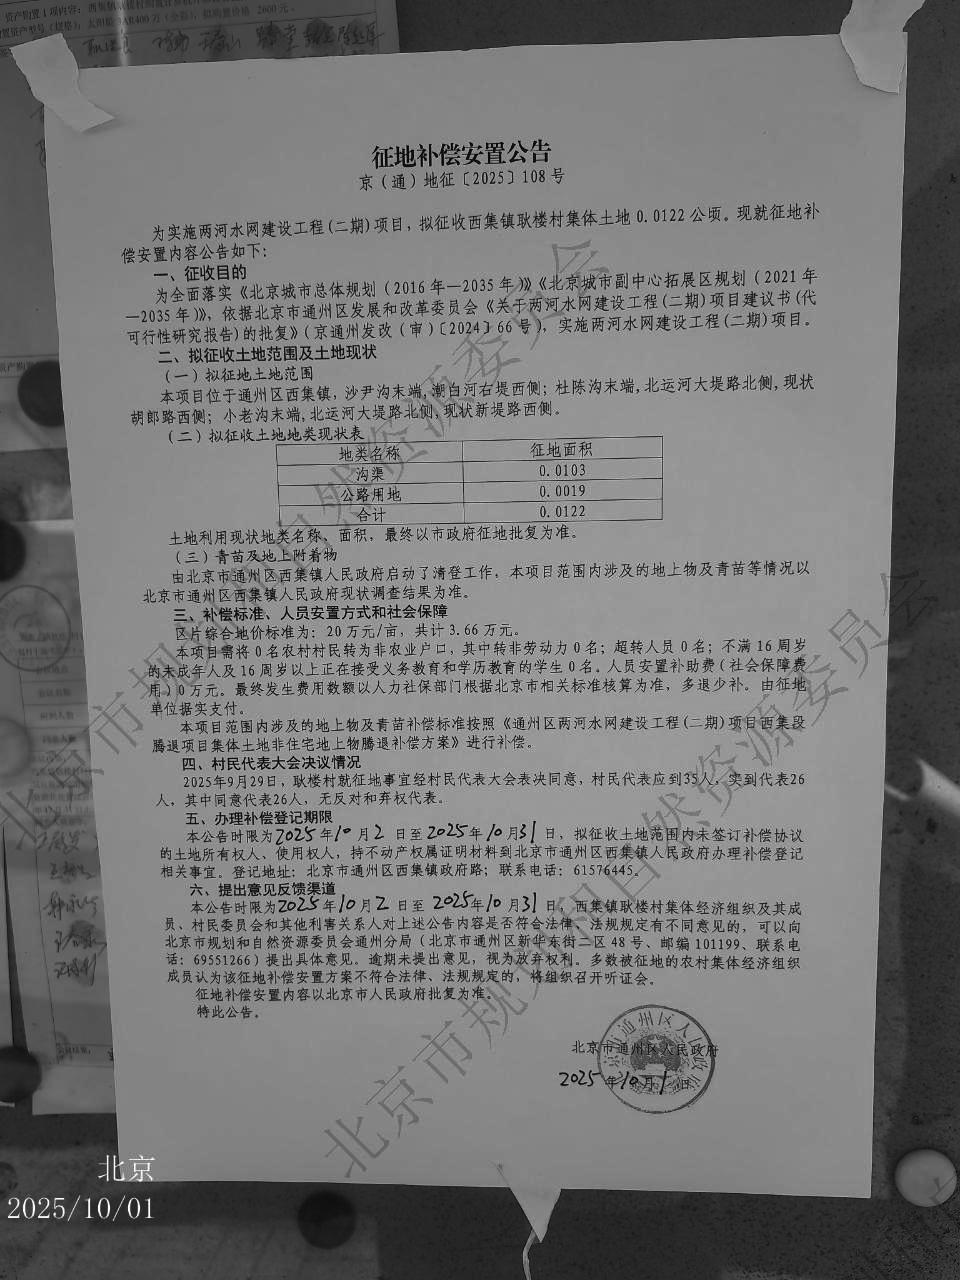 资产购置1项内容：
征地补偿安置公告
京（通）地征〔2025〕108号
为实施两河水网建设工程(二期)项目，拟征收西集镇耿楼村集体土地0.0122公顷。现就征地补
偿安置内容公告如下：
一、征收目的
为全面落实《北京城市总体规划（2016年—2035年）》《北京城市副中心拓展区规划（2021年
—2035年）》，依据北京市通州区发展和改革委员会《关于两河水网建设工程(二期)项目建议书(代
可行性研究报告)的批复》（京通州发改（审）〔2024〕66号），实施两河水网建设工程(二期)项目。
二、拟征收土地范围及土地现状
（一）拟征地土地范围
本项目位于通州区西集镇，沙尹沟末端,潮白河右堤西侧；杜陈沟末端,北运河大堤路北侧,现状
胡郎路西侧；小老沟末端,北运河大堤路北侧,现状新堤路西侧。
（二）拟征收土地地类现状表
地类名称 征地面积
沟渠 0.0103
公路用地 0.0019
合计 0.0122
土地利用现状地类名称、面积，最终以市政府征地批复为准。
（三）青苗及地上附着物
由北京市通州区西集镇人民政府启动了清登工作，本项目范围内涉及的地上物及青苗等情况以
北京市通州区西集镇人民政府现状调查结果为准。
三、补偿标准、人员安置方式和社会保障
区片综合地价标准为：20万元/亩，共计3.66万元。
本项目需将0名农村村民转为非农业户口，其中转非劳动力0名；超转人员0名；不满16周岁
的未成年人及16周岁以上正在接受义务教育和学历教育的学生0名。人员安置补助费（社会保障费
用）0万元。最终发生费用数额以人力社保部门根据北京市相关标准核算为准，多退少补。由征地
单位据实支付。
本项目范围内涉及的地上物及青苗补偿标准按照《通州区两河水网建设工程(二期)项目西集段
腾退项目集体土地非住宅地上物腾退补偿方案》进行补偿。
四、村民代表大会决议情况
2025年9月29日，耿楼村就征地事宜经村民代表大会表决同意，村民代表应到35人，实到代表26
人，其中同意代表26人，无反对和弃权代表。
五、办理补偿登记期限
本公告时限为2025年10月2日至2025年10月31日，拟征收土地范围内未签订补偿协议
的土地所有权人、使用权人，持不动产权属证明材料到北京市通州区西集镇人民政府办理补偿登记
相关事宜。登记地址：北京市通州区西集镇政府路；联系电话：61576445。
六、提出意见反馈渠道
本公告时限为2025年10月2日至 2025年10月31日，西集镇耿楼村集体经济组织及其成
员、村民委员会和其他利害关系人对上述公告内容是否符合法律、法规规定有不同意见的，可以向
北京市规划和自然资源委员会通州分局（北京市通州区新华东街二区48号、邮编101199、联系电
话：69551266）提出具体意见。逾期未提出意见，视为放弃权利。多数被征地的农村集体经济组织
成员认为该征地补偿安置方案不符合法律、法规规定的，将组织召开听证会。
征地补偿安置内容以北京市人民政府批复为准。
特此公告。
北京市通州区人民政府
2025年10月1日
北京市规划和自然资源委员会
北京市规划和自然资源委员会
北京
2025/10/01